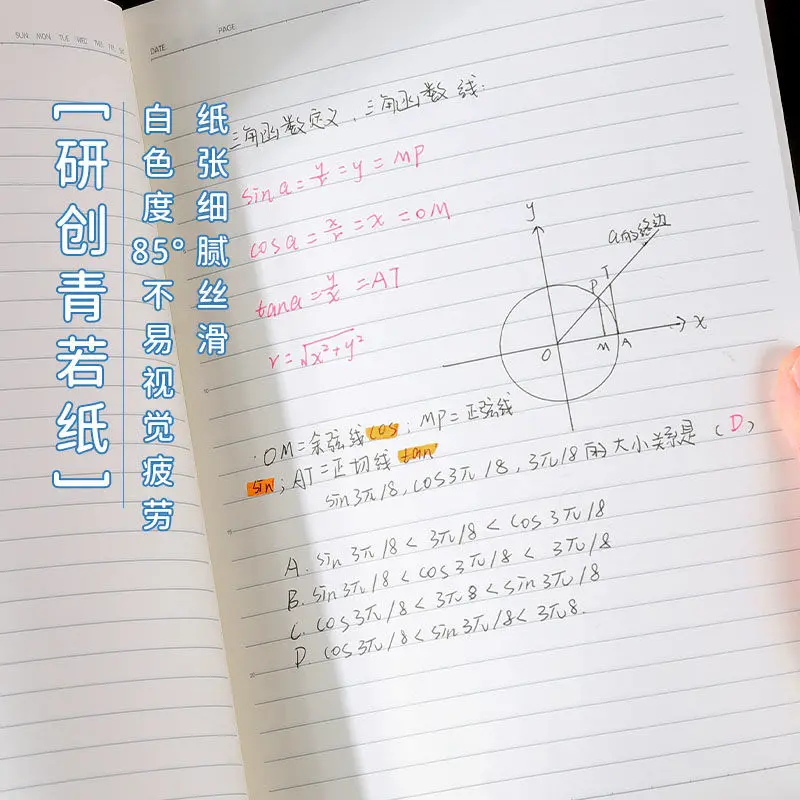 SUN MON TUE WED THU FRI
DATE PAGE
[研创青若纸]
白色度85°不易视觉疲劳
纸张细腻丝滑
三角函数定义、三角函数线:
sin a = y/r = y = MP
cos a = x/r = x = OM
tan a = y/x = AT
r = √x²+y²
y
a的终边
P T
O M A x
OM=余弦线cos; MP=正弦线
sin; AT=正切线 tan
sin3π/8, cos3π/8, 3π/8的大小关系是 (D)
A. sin 3π/8 < 3π/8 < cos 3π/8
B. sin3π/8 < cos3π/8 < 3π/8
C. cos3π/8 < 3π8 < sin3π/8
D. cos3π/8 < sin3π/8 < 3π8.
10
15
20